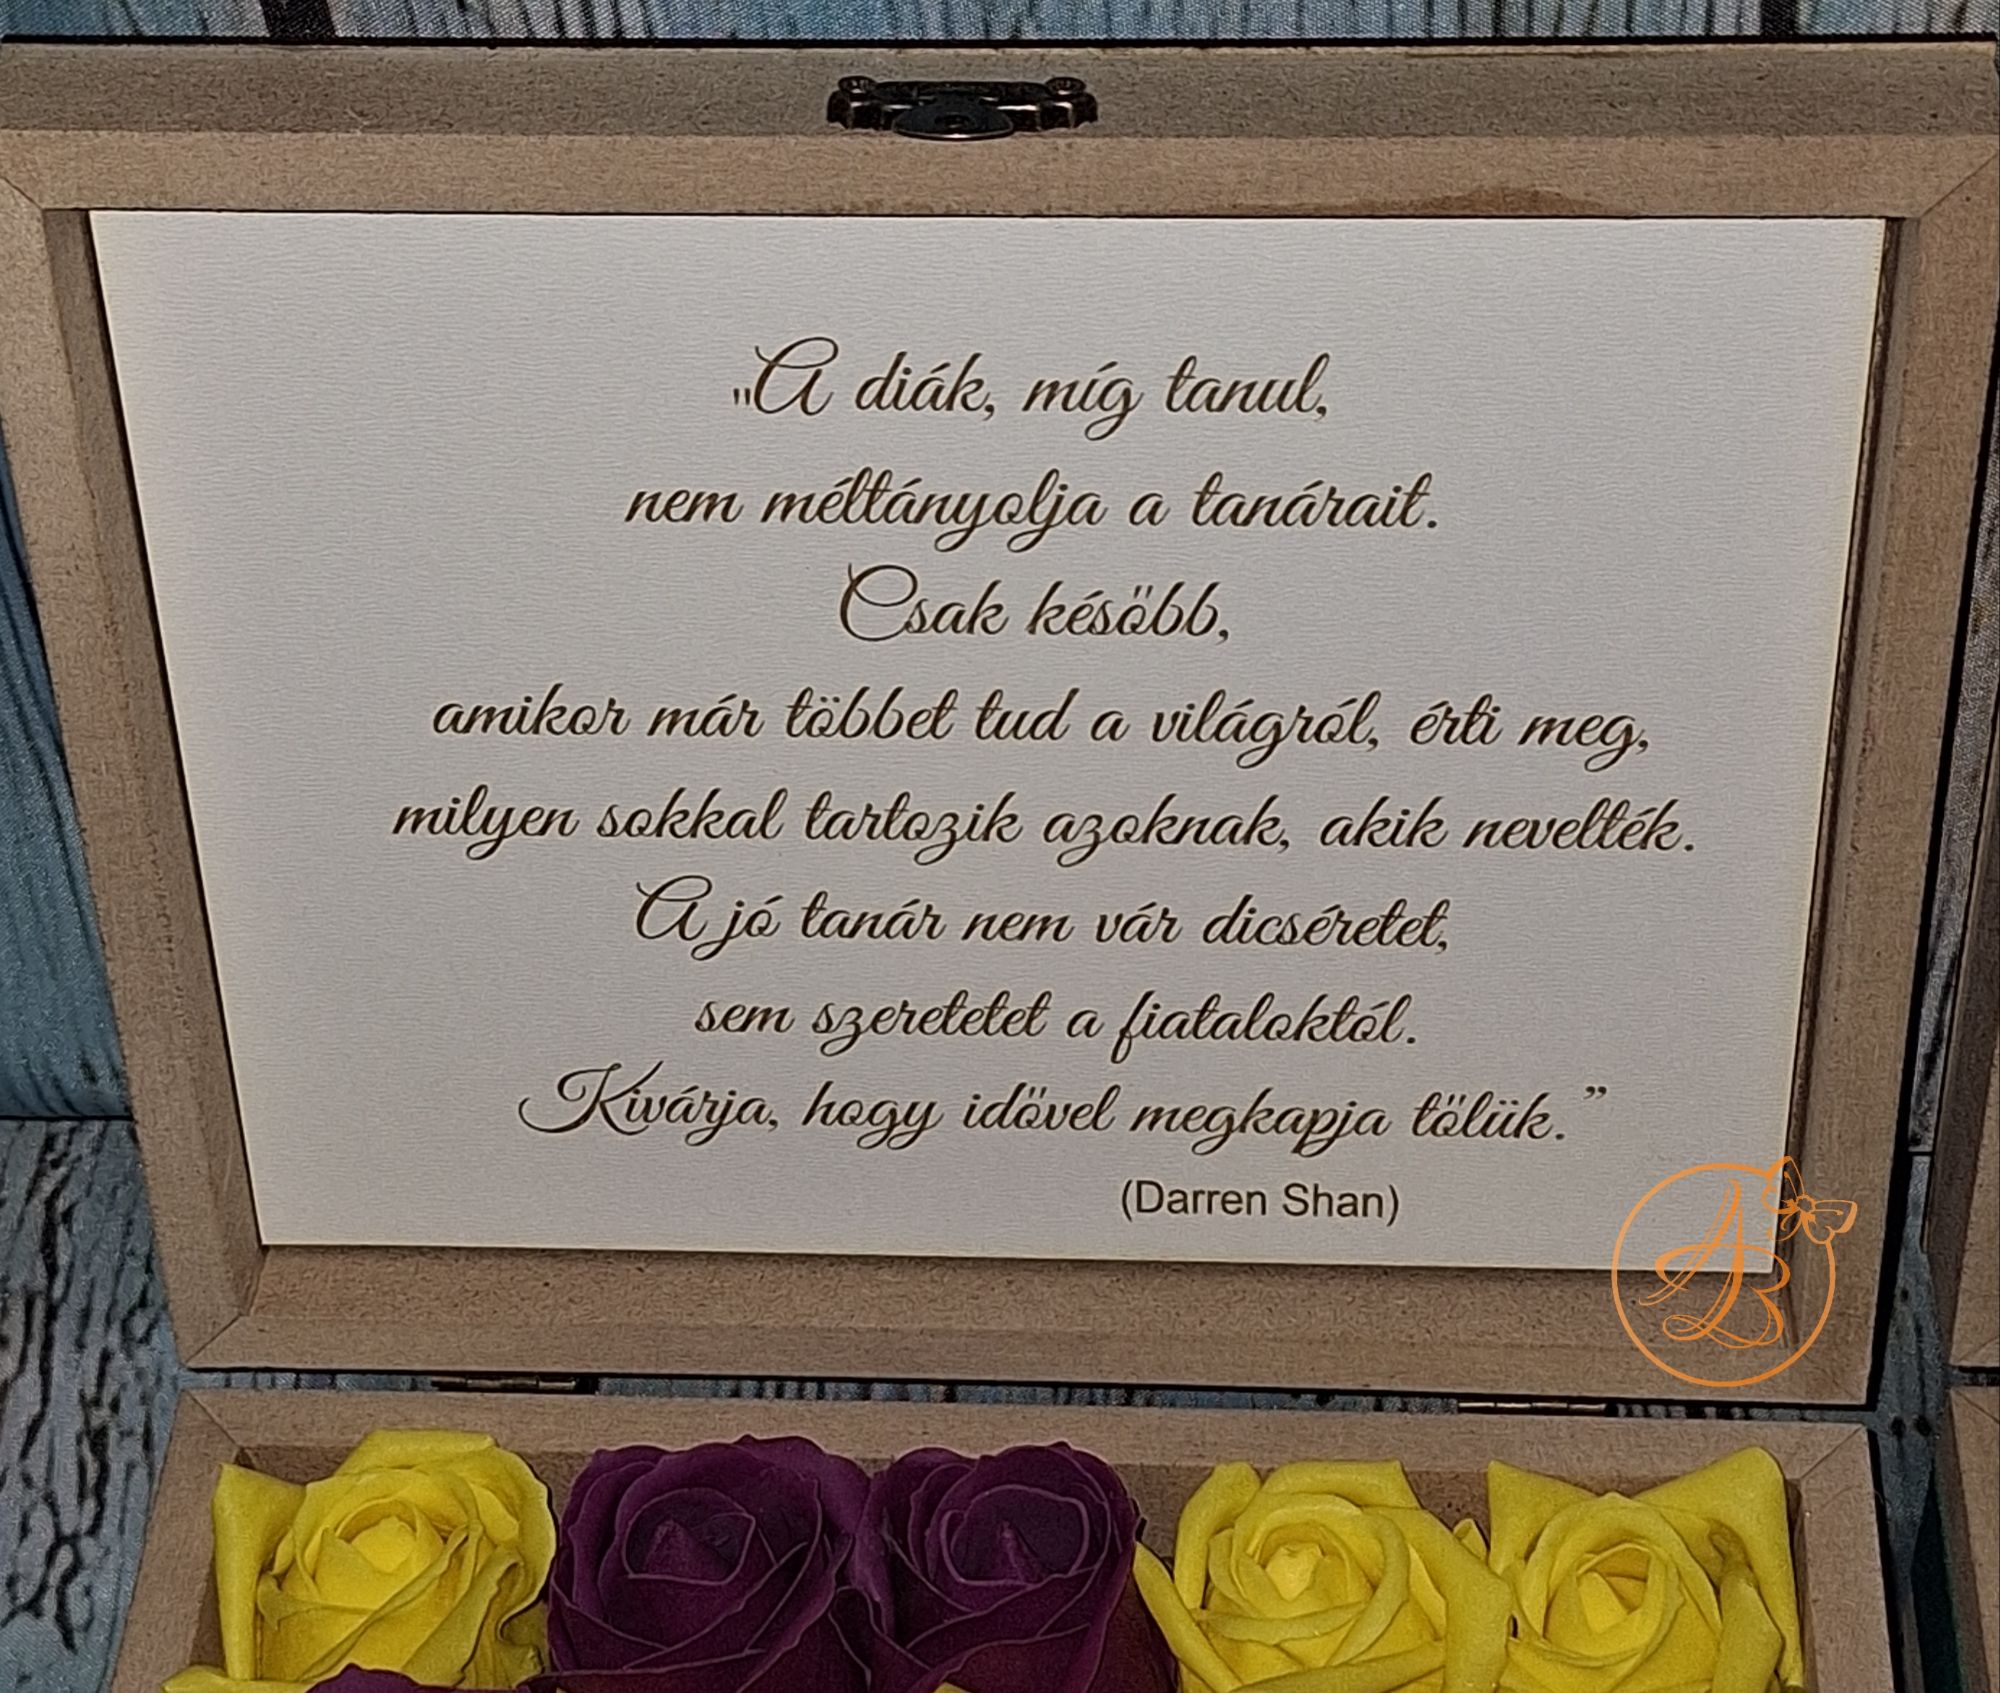 "A diák, míg tanul,
nem méltányolja a tanárait.
Csak később,
amikor már többet tud a világról, érti meg,
milyen sokkal tartozik azoknak, akik nevelték.
A jó tanár nem vár dicséretet,
sem szeretetet a fiataloktól.
Kivárja, hogy idővel megkapja tőlük.”
(Darren Shan)
AB